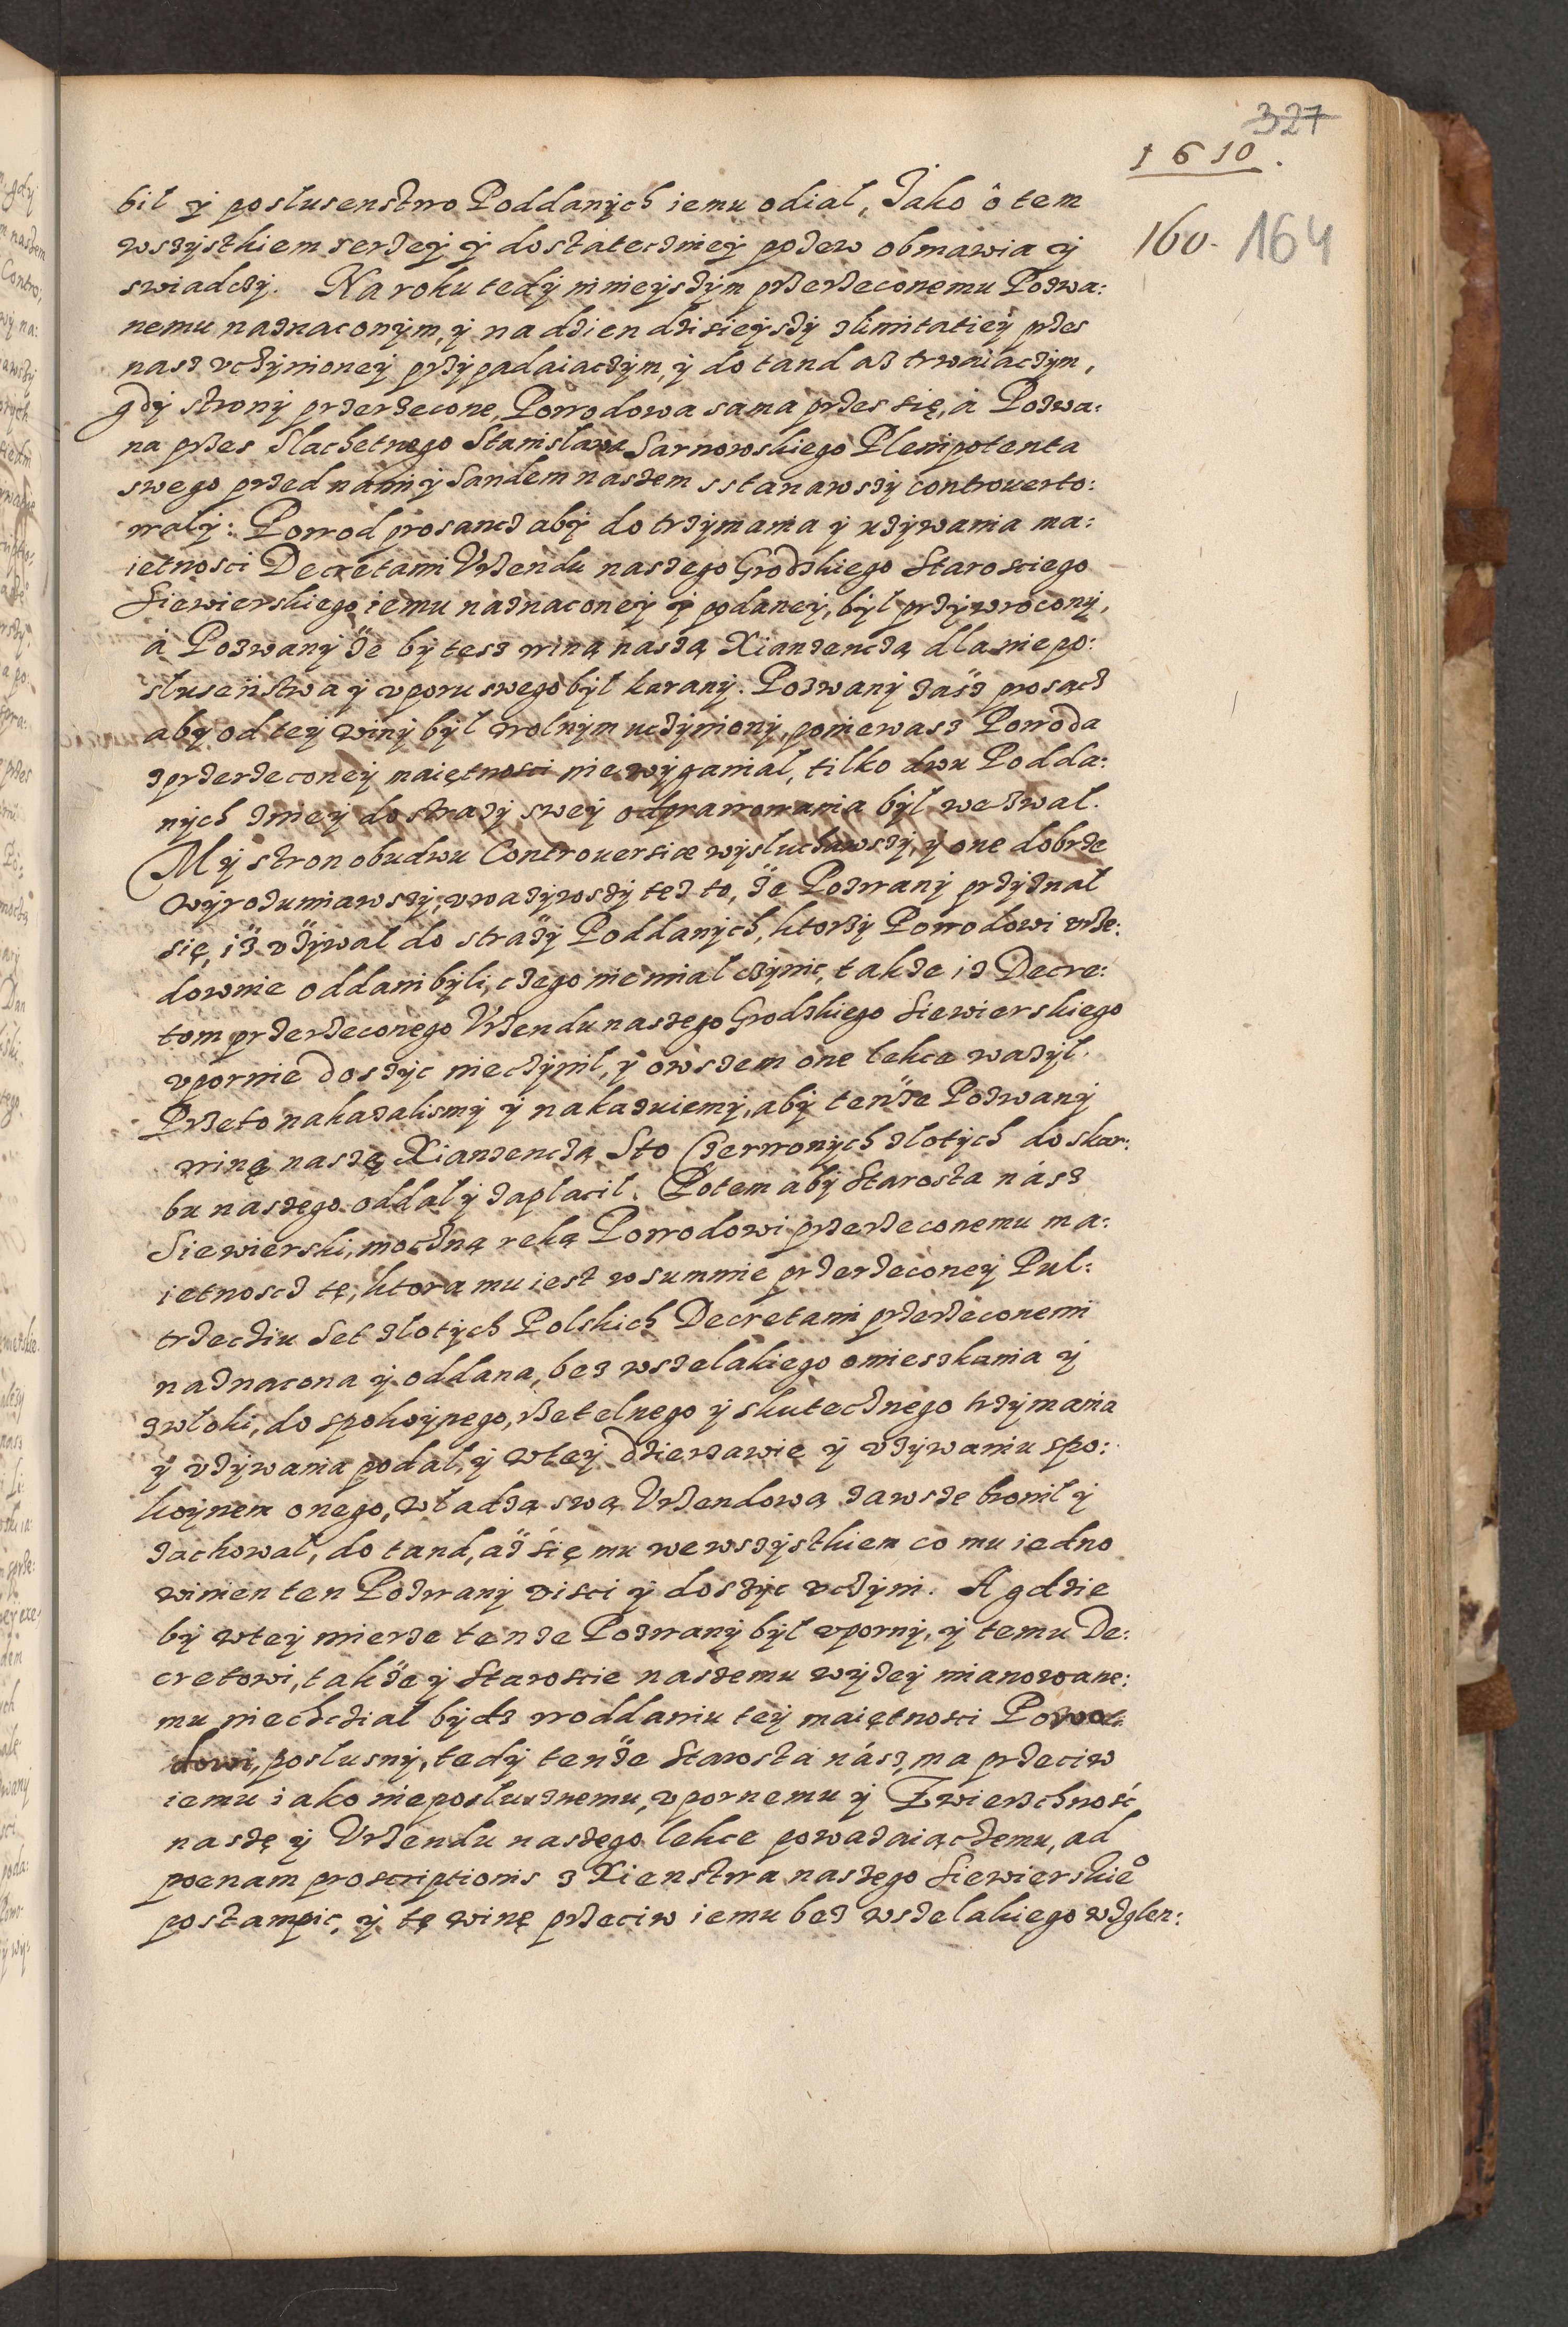 327
1610.
160. 164
bil ÿ poslusenstwo Poddanÿch iemu odial, Jako o tem
wszÿstkiem serzeÿ ÿ dostatecznieÿ pozew obmawia ÿ
swiadczÿ. Na roku tedÿ ninieÿszÿm przerzeconemu Pozwa:
nemu naznaconÿm, ÿ na dzien dzisieÿszÿ zlimitatieÿ przes
nasz vczÿnioneÿ przÿpadaiaczÿm, ÿ do tand asz trwaiaczÿm,
gdÿ stronÿ przerzecone, Powodowa sama przes się, à Pozwa:
na przes Slachetnego Stanislawa Sarnowskiego Plenipotenta
swego przed nami ÿ Sandem naszem sstanawszÿ controuerto:
walÿ: Powod prosancz abÿ do trzÿmania ÿ uzÿwania ma:
ietnosci Decretami Vrzendu naszego Grodzkiego Starosciego
Siewierskiego iemu naznaconeÿ ÿ podaneÿ, bÿl przÿwroconÿ,
à Pozwanÿ że bÿ tesz winą naszą Xianzenczą dla niepo:
slusenstwa ÿ vporu swego bÿl karanÿ. Pozwanÿ zasz prosącz
abÿ od teÿ winÿ bÿl wolnÿm uczÿnionÿ, poniewasz Powoda
zprzerzeconeÿ maiętnosci nie wÿganial, tilko dwu Podda:
nÿch znieÿ do strazÿ sweÿ odprawowania bÿl wezwal.
Mÿ stron obudwu Controuersiæ wÿsluchawszÿ, ÿ one dobrze
wÿrozumiawszÿ, vwazÿwszÿ tez to, że Pozwanÿ przÿznal
się, iż vżÿwal do strażÿ Poddanÿch, ktorzÿ Powodowi vrze:
downie oddani bÿli, czego nie mial czÿnic, takze iz Decre:
tom przerzeconego Vrzendu naszego Grodzkiego Siewierskiego
vpornie doszÿc nieczÿnil, ÿ owszem one lekce wazÿl.
Przeto nakazalismÿ ÿ nakazuiemÿ, abÿ tenże Pozwanÿ
winę naszę Xianzenczą Sto Czerwonÿch zlotÿch do skar:
bu naszego oddal ÿ zaplacil. Potem abÿ Starosta nász
Siewierski, mocżną reką Powodowi przerzeconemu ma:
ietnoscz tę, ktora mu iest w summie przerzeconeÿ Pul:
trzecziu Set zlotÿch Polskich Decretami przerzeconemi
naznacona ÿ oddana, bez wszelakiego omieszkania ÿ
zwloki, do spokoÿnego, rzetelnego ÿ skutecznego trzÿmania
ÿ vzÿwania podal, ÿ wteÿ dzierzawie ÿ vzÿwaniu spo:
koÿnem onego, wladzą swą Vrzendową zawsze bronil ÿ
zachowal, do tand, aż się mu wewszÿstkiem co mu iedno
winien ten Pozwanÿ visci ÿ doszÿc vczÿni. A gdzie
bÿ wteÿ mierze tenze Pozwanÿ bÿl vpornÿ, ÿ temu De:
cretowi, także ÿ Staroscie naszemu wÿzeÿ mianowane:
mu niechczial bÿdz woddaniu teÿ maiętnosci Powo:
dowi, poslusnÿ, tedÿ tenże Starosta nász, ma przeciw
iemu iako nieposlusznemu, vpornemu ÿ Zwierzchność
naszę ÿ Vrzendu naszego lekce powazaiączemu, ad
poenam proscriptionis z Xienstwa naszego Siewierskie°
postampic, ÿ tę winę przeciw iemu bez wszelakiego wzglen: